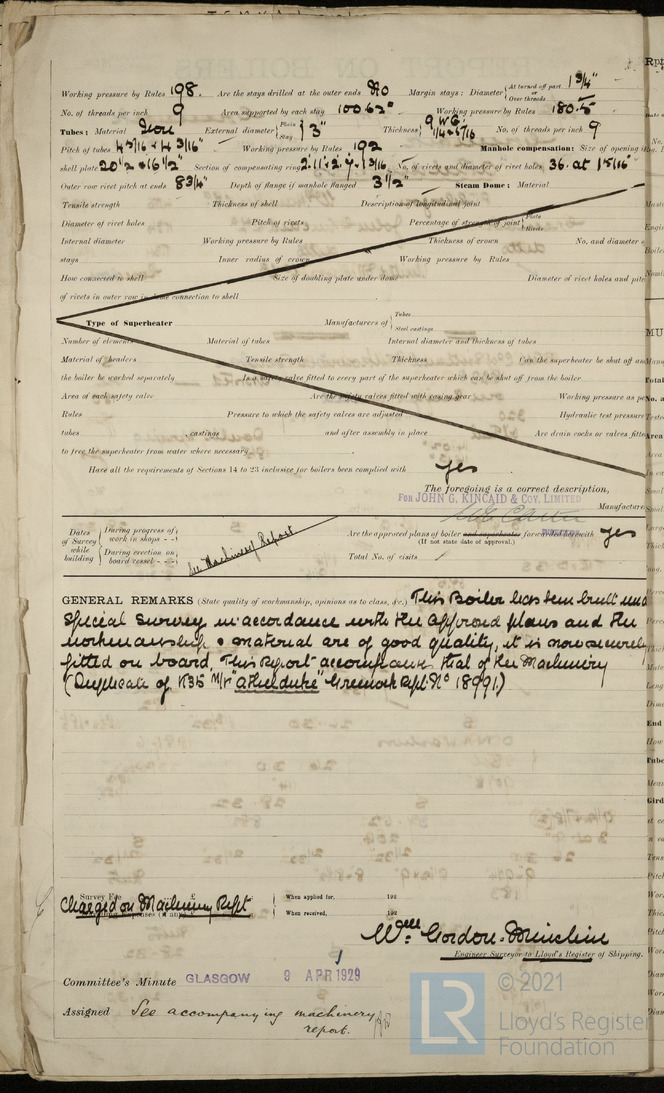 Working pressure by Rules 198. Are the stays drilled at the outer ends No Margin stays: Diameter { At turned off part or Over threads 1 3/4"
No. of threads per inch 9 Area supported by each stay 100.62" Working pressure by Rules 180.5
Tubes: Material Iron External diameter { Plain Stay } 3" Thickness { 9 W.G. 1/4 & 5/16 No. of threads per inch 9
Pitch of tubes 4 3/16 x 4 3/16" Working pressure by Rules 192 Manhole compensation: Size of opening in
shell plate 20 1/2 x 16 1/2" Section of compensating ring No. of rivets and diameter of rivet holes 36. at 1 5/16"
Outer row rivet pitch at ends 8 3/4" Depth of flange if manhole flanged 3 1/2" Steam Dome: Material
Tensile strength Thickness of shell Description of longitudinal joint
Diameter of rivet holes Pitch of rivets Percentage of strength of joint { Plate Rivets
Internal diameter Working pressure by Rules Thickness of crown No. and diameter
stays Inner radius of crown Working pressure by Rules
How connected to shell Size of doubling plate under dome Diameter of rivet holes and pitch
of rivets in outer row in dome connection to shell
Type of Superheater Manufacturers of { Tubes Steel castings
Number of elements Material of tubes Internal diameter and thickness of tubes
Material of headers Tensile strength Thickness Can the superheater be shut off and
the boiler be worked separately Is a safety valve fitted to every part of the superheater which can be shut off from the boiler
Area of each safety valve Are the safety valves fitted with easing gear Working pressure as per
Rules Pressure to which the safety valves are adjusted Hydraulic test pressure
tubes castings and after assembly in place Are drain cocks or valves fitted
to free the superheater from water where necessary
Have all the requirements of Sections 14 to 23 inclusive for boilers been complied with yes
The foregoing is a correct description,
For JOHN G. KINCAID & COY. LIMITED
Manufacture
Dates of Survey while building { During progress of work in shops - - { During erection on board vessel - - - See Machinery Report Are the approved plans of boiler and superheater forwarded herewith yes
(If not state date of approval.)
Total No. of visits /
GENERAL REMARKS (State quality of workmanship, opinions as to class, &c.) This Boiler has been built under
Special Survey in accordance with the approved plans and the
workmanship & material are of good quality, it is now securely
fitted on board, This Report accompanies that of the Machinery
(Duplicate of M/V "Athelduke" Greenock Rpt. No 18991.)
Survey Fee £ When applied for, 192
Charged on Machinery Rept
When received, 192
Wm Gordon-Minchin
Engineer Surveyor to Lloyd's Register of Shipping.
Committee's Minute GLASGOW 9 APR 1929
Assigned See accompanying machinery
report.
LR © 2021
Lloyd's Register
Foundation